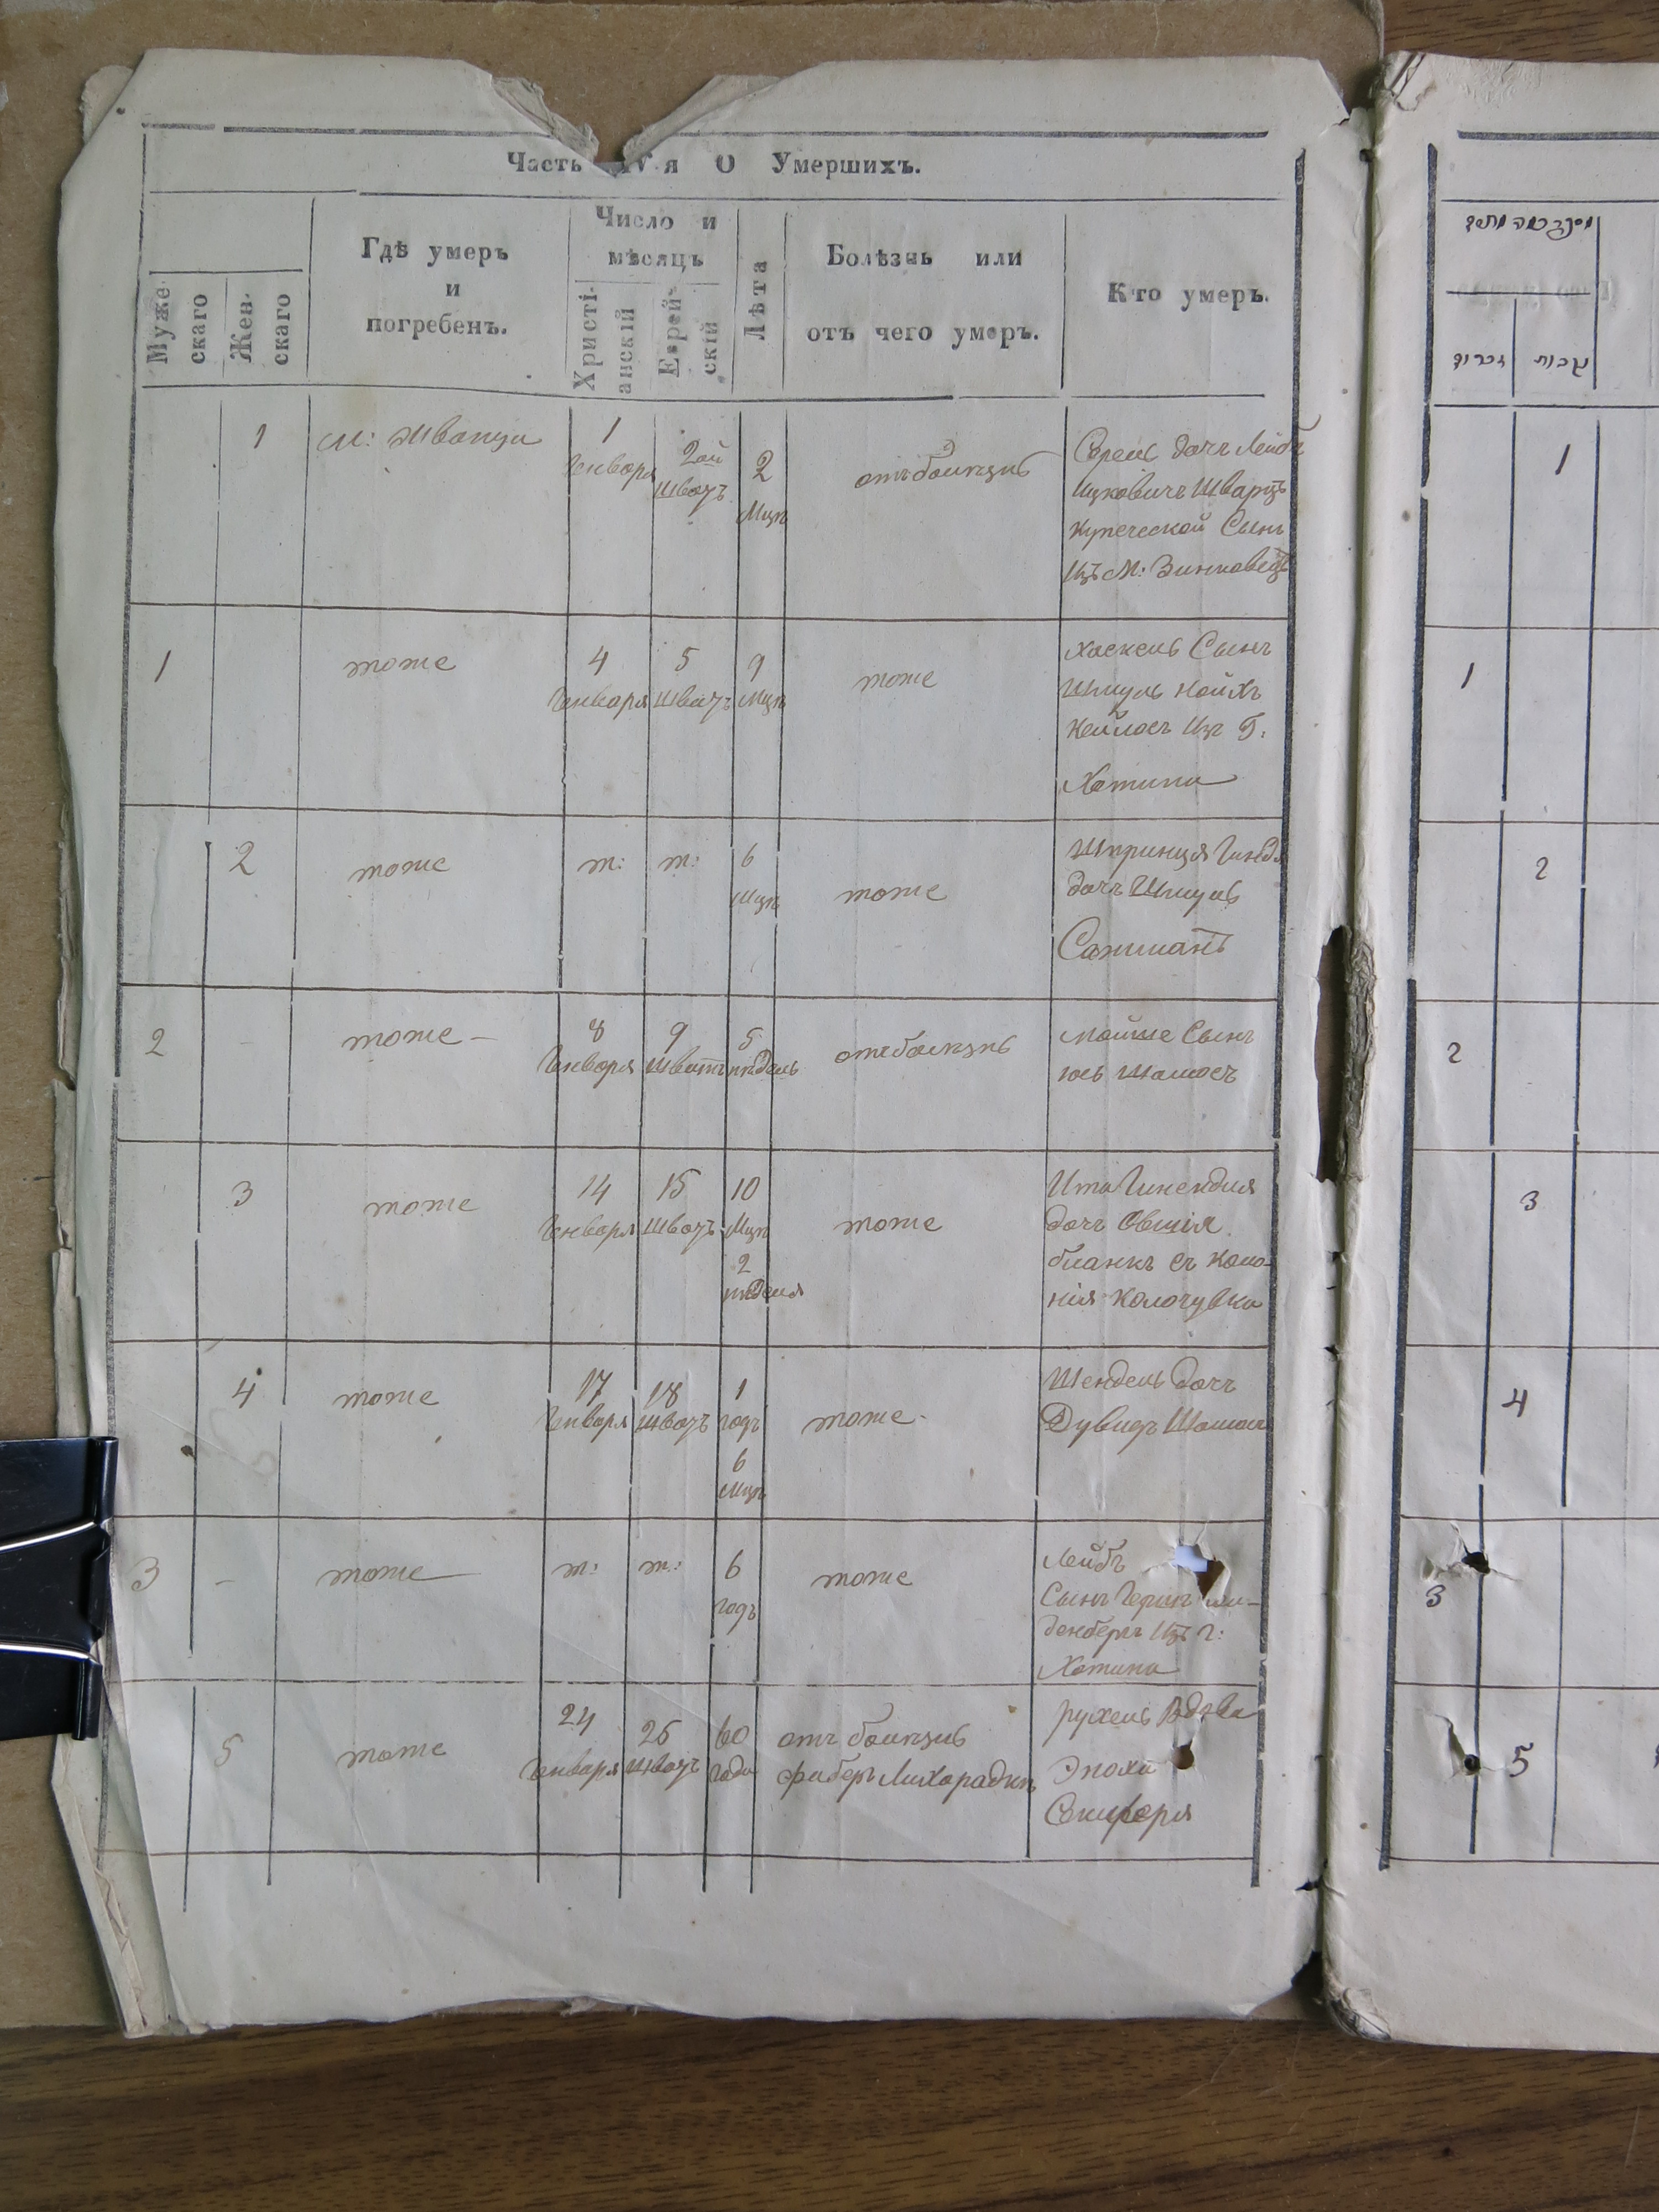 Часть IV.я О Умершихъ.
Муже-
скаго
Жен-
скаго
Гдѣ умеръ
и
погребенъ.
Число и
мѣсяцъ
Христі-
анскій
Еврей-
скій
Лѣта
Болѣзнь или
отъ чего умеръ.
Кто умеръ.
1
м: Жванци
1
Генваря
2ой
Шватъ
2
Мцъ
отъ болѣзнь
дочъ Лейбъ
Ицковичъ Шварцъ
Купеческой Сынъ
Изъ М: Зинковецъ
1
тоже
4
Генваря
5
Шватъ
9
Мцъ
тоже
Хаскель Сынъ
Шмуль
Изъ Г:
Хотина
2
тоже
т:
т:
6
Мцъ
тоже
Шпринця
дочъ Шмуль
2
-
тоже -
8
Генваря
9
Шватъ
5
недель
отъ болѣзнь
Мойше Сынъ
Шамесъ
3
тоже
14
Генваря
15
Шватъ
10
Мцъ
2
неделя
тоже
Ита
дочъ Овшія
бланкъ съ Коло-
нія
4
тоже
17
Генваря
18
Шватъ
1
годъ
6
Мцъ
тоже -
Шендель дочъ
Дувидъ
3
-
тоже
т:
т:
6
годъ
тоже
Лейбъ
Сынъ Гершъ
денбергъ Изъ г:
Хотина
5
тоже
24
Генваря
25
Шватъ
60
года
отъ болѣзнь
фиберъ Лихорадки
рухель Вдова
1
1
2
2
3
4
3
5